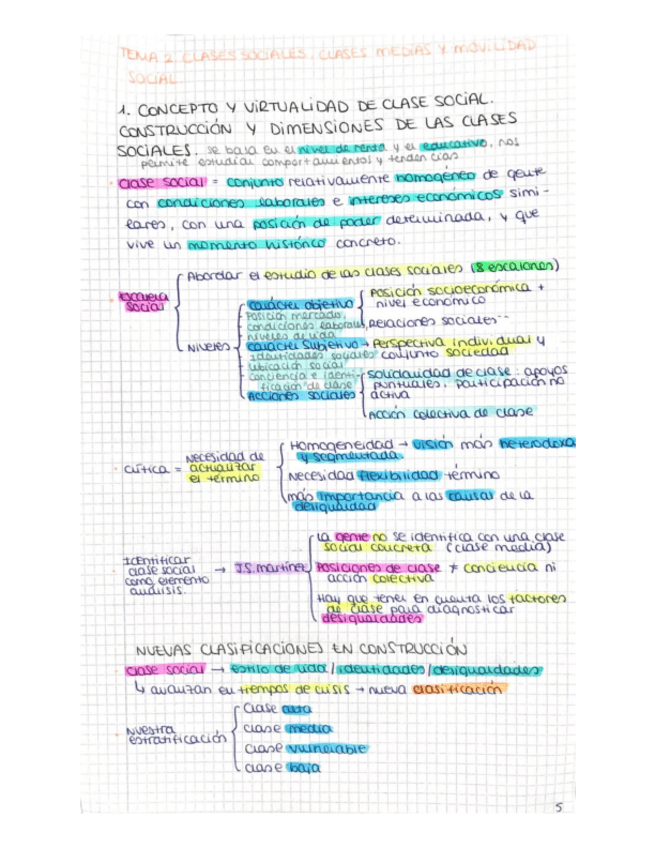 TEMA 2. CLASES SOCIALES, CLASES MEDIAS Y MOVILIDAD
SOCIAL
1. CONCEPTO Y VIRTUALIDAD DE CLASE SOCIAL.
CONSTRUCCIÓN Y DIMENSIONES DE LAS CLASES
SOCIALES. se basa en el nivel de renta y el educativo, nos
permite estudiar comportamientos y tendencias
clase social = conjunto relativamente homogéneo de gente
con condiciones laborales e intereses económicos simi-
lares, con una posición de poder determinada, y que
vive un momento histórico concreto.
Escalera
social
Abordar el estudio de las clases sociales (8 escalones)
Niveles
carácter objetivo
Posición mercado,
condiciones laborales,
niveles de vida
Posición socioeconómica +
nivel económico
Relaciones sociales
carácter subjetivo → Perspectiva individual y
conjunto sociedad
Identidades sociales
ubicación social
conciencia e identi-
ficación de clase
Acciones sociales
Solidaridad de clase: apoyos
puntuales, participación no
activa
Acción colectiva de clase
crítica = Necesidad de
actualizar
el término
Homogeneidad → visión más heterodoxa
y segmentada.
Necesidad flexibilidad término
más importancia a las causas de la
desigualdad
Identificar
clase social
como elemento
análisis.
→ J.S. martínez
La gente no se identifica con una clase
social concreta (clase media)
Posiciones de clase ≠ conciencia ni
acción colectiva
Hay que tener en cuenta los factores
de clase para diagnosticar
desigualdades
NUEVAS CLASIFICACIONES EN CONSTRUCCIÓN
clase social → estilo de vida / identidades / desigualdades
↳ avanzan en tiempos de crisis → nueva clasificación
Nuestra
estratificación
clase alta
clase media
clase vulnerable
clase baja
5